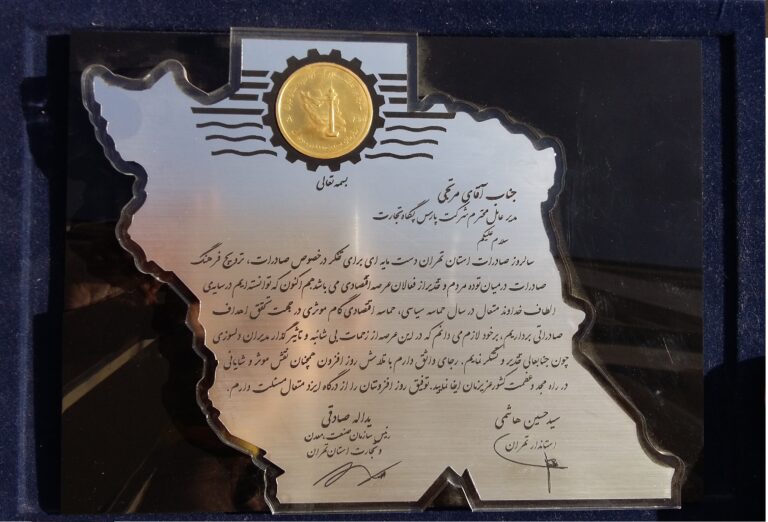 بسمه تعالی
جناب آقای مرتجی
مدیر عامل محترم شرکت پارس پگاه تجارت
سلام علیکم
سالروز صادرات استان تهران دست مایه ای برای تفکر درخصوص صادرات، ترویج فرهنگ
صادرات درمیان توده مردم و تقدیر از فعالان عرصه اقتصادی می باشد. هم اکنون که توانسته ایم در سایه ی
الطاف خداوند متعال در سال حماسه سیاسی، حماسه اقتصادی گام موثری در جهت تحقق اهداف
صادراتی برداریم، برخود لازم می دانم که در این عرصه از زحمات بی شائبه و تاثیر گذار مدیران دلسوزی
چون جنابعالی تقدیر و تشکر نمایم. رجای واثق دارم با تلاش روز افزون همچنان نقش موثر و شایانی
در راه مجد و عظمت کشور عزیزمان ایفا نمایید. توفیق روز افزونتان را از درگاه ایزد متعال مسئلت دارم.
سید حسین هاشمی
استاندار تهران
یداله صادقی
رئیس سازمان صنعت، معدن
و تجارت استان تهران